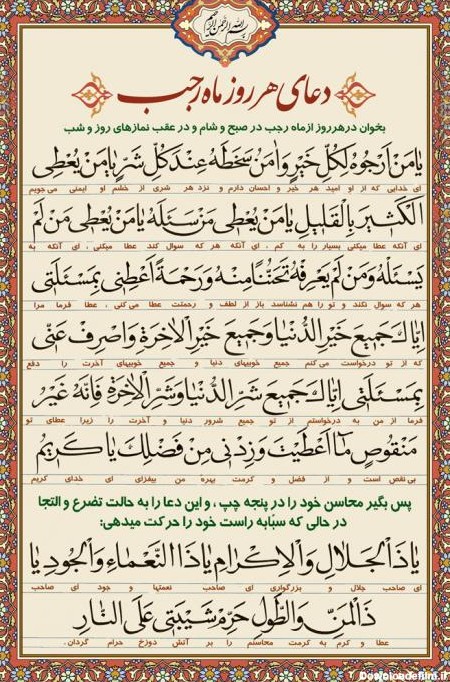 بسم الله الرحمن الرحیم
دعای هر روز ماه رجب
بخوان در هر روز از ماه رجب در صبح و شام و در عقب نمازهای روز و شب
یا مَن اَرْجُوهُ لِکُلِّ خَیْرٍ وَامَنُ سَخَطَهُ عِنْدَ کُلِّ شَرٍّ یا مَنْ یُعْطِی
ای خدایی که از او امید هر خیر و احسان دارم و نزد هر شری از خشم او ایمنی می جویم
الْکَثیرَ بِالْقَلیلِ یا مَنْ یُعْطی مَنْ سَئَلَهُ یا مَنْ یُعْطی مَنْ لَمْ
ای آنکه عطا میکنی بسیار را به کم ، ای آنکه هر که سوال کند عطا میکنی ، ای آنکه به
یَسْئَلْهُ وَمَنْ لَمْ یَعْرِفْهُ تَحَنُّناً مِنْهُ وَرَحْمَةً اَعْطِنی بِمَسْئَلَتی
هر که سوال نکند و تو را هم نشناسد باز از لطف و رحمتت عطا می کنی ، عطا فرما مرا
اِیّاکَ جَمیعَ خَیْرِ الدُّنْیا وَجَمیعَ خَیْرِ الْاخِرَةِ وَاصْرِفْ عَنّی
که از تو درخواست می کنم جمیع خوبیهای دنیا و جمیع خوبیهای آخرت را دفع
بِمَسْئَلَتی اِیّاکَ جَمیعَ شَرِّ الدُّنْیا وَشَرِّ الْاخِرَةِ فَاِنَّهُ غَیْرُ
فرما از من به درخواستم از تو جمیع شرور دنیا و آخرت را زیرا عطای تو
مَنْقُوصٍ ما اَعْطَیْتَ وَزِدْنی مِنْ فَضْلِکَ یا کَریمُ
بی نقص است و از فضل و کرمت بهره من بیفزای ای خدای کریم
پس بگیر محاسن خود را در پنجه چپ ، و این دعا را به حالت تضرع و التجا
در حالی که سبّابه راست خود را حرکت میدهی:
یا ذَا الْجَلالِ وَالْاِکْرامِ یا ذَا النَّعْماءِ وَالْجُودِ یا
ای صاحب جلال و بزرگواری ای صاحب نعمتها و جود ای صاحب
ذَا الْمَنِّ وَالطَّوْلِ حَرِّمْ شَیْبَتی عَلَی النّارِ
عطا و کرم به کرمت محاسنم را بر آتش دوزخ حرام گردان.